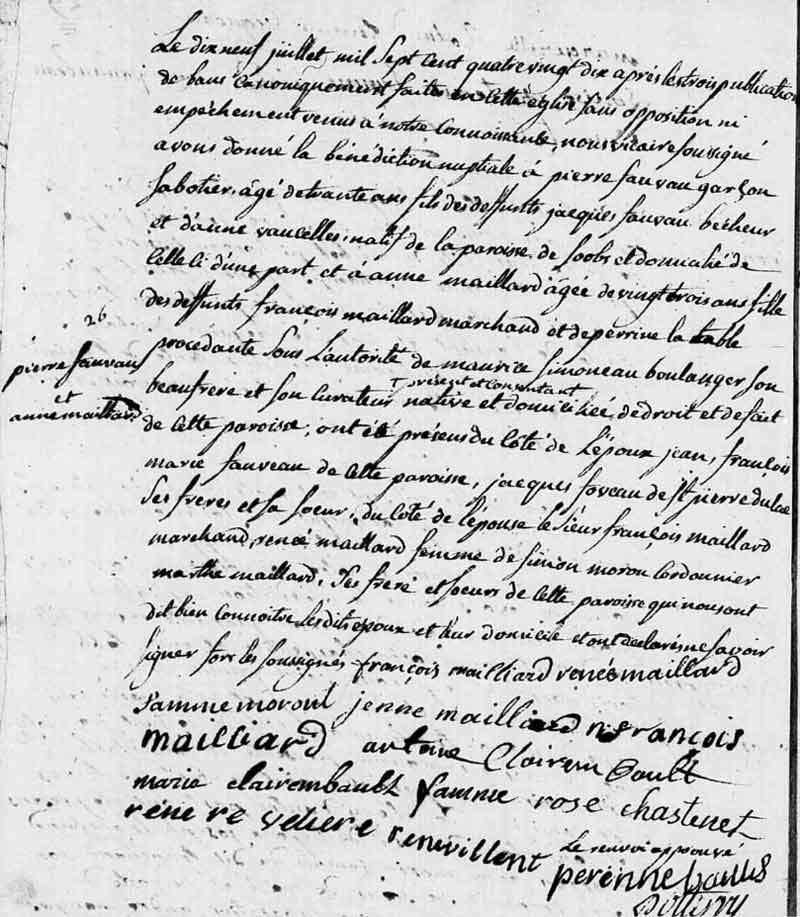 Le dix neuf juillet mil sept cent quatre vingt dix après les trois publication
de bans canoniquement faites en cette église sans opposition ni
empêchement venus à notre connoissance, nous vicaire soussigné
avons donné la bénédiction nuptiale à pierre fauvau garçon
sabotier, âgé de trante ans fils des deffunts jacques fauvau bêcheur
et d'anne vaucelles, natif de la paroisse de soobs et domicilié de
celle ci d'une part et à anne maillard âgée de vingt trois ans fille
des deffunts françois maillard marchand et de perrine la table
26
pierre fauvau
et
anne maillard
procédante sous l'autorité de maurice simoneau boulanger son
beaufrere et son curateur native et domiciliée de droit et de fait
présent et consentant
de cette paroisse, ont été présens du côté de l'époux jean, françois
marie fauveau de cette paroisse, jacques foveau de St pierre du lac
ses freres et sa soeur, du coté de l'épouse le sieur françois maillard
marchand, renée maillard femme de simon morou cordonnier
marthe maillard, ses frere et soeurs de cette paroisse qui nous ont
dit bien connoitre les dits époux et leur domicile et ont declaré ne savoir
signer fors les soussignés françois mailliard renés maillard
famme jenne mailliard françois
mailliard antoine
marie clairembault famme rose chastenet
rene re veliere
Le renvoi approuvé
perinne